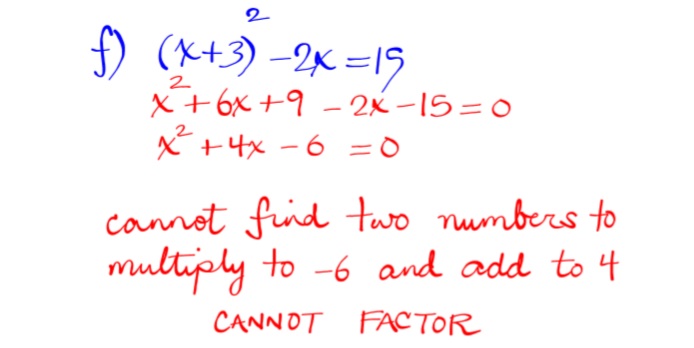 f) (x+3)² -2x = 15
x² + 6x + 9 - 2x - 15 = 0
x² + 4x - 6 = 0
cannot find two numbers to
multiply to -6 and add to 4
CANNOT FACTOR